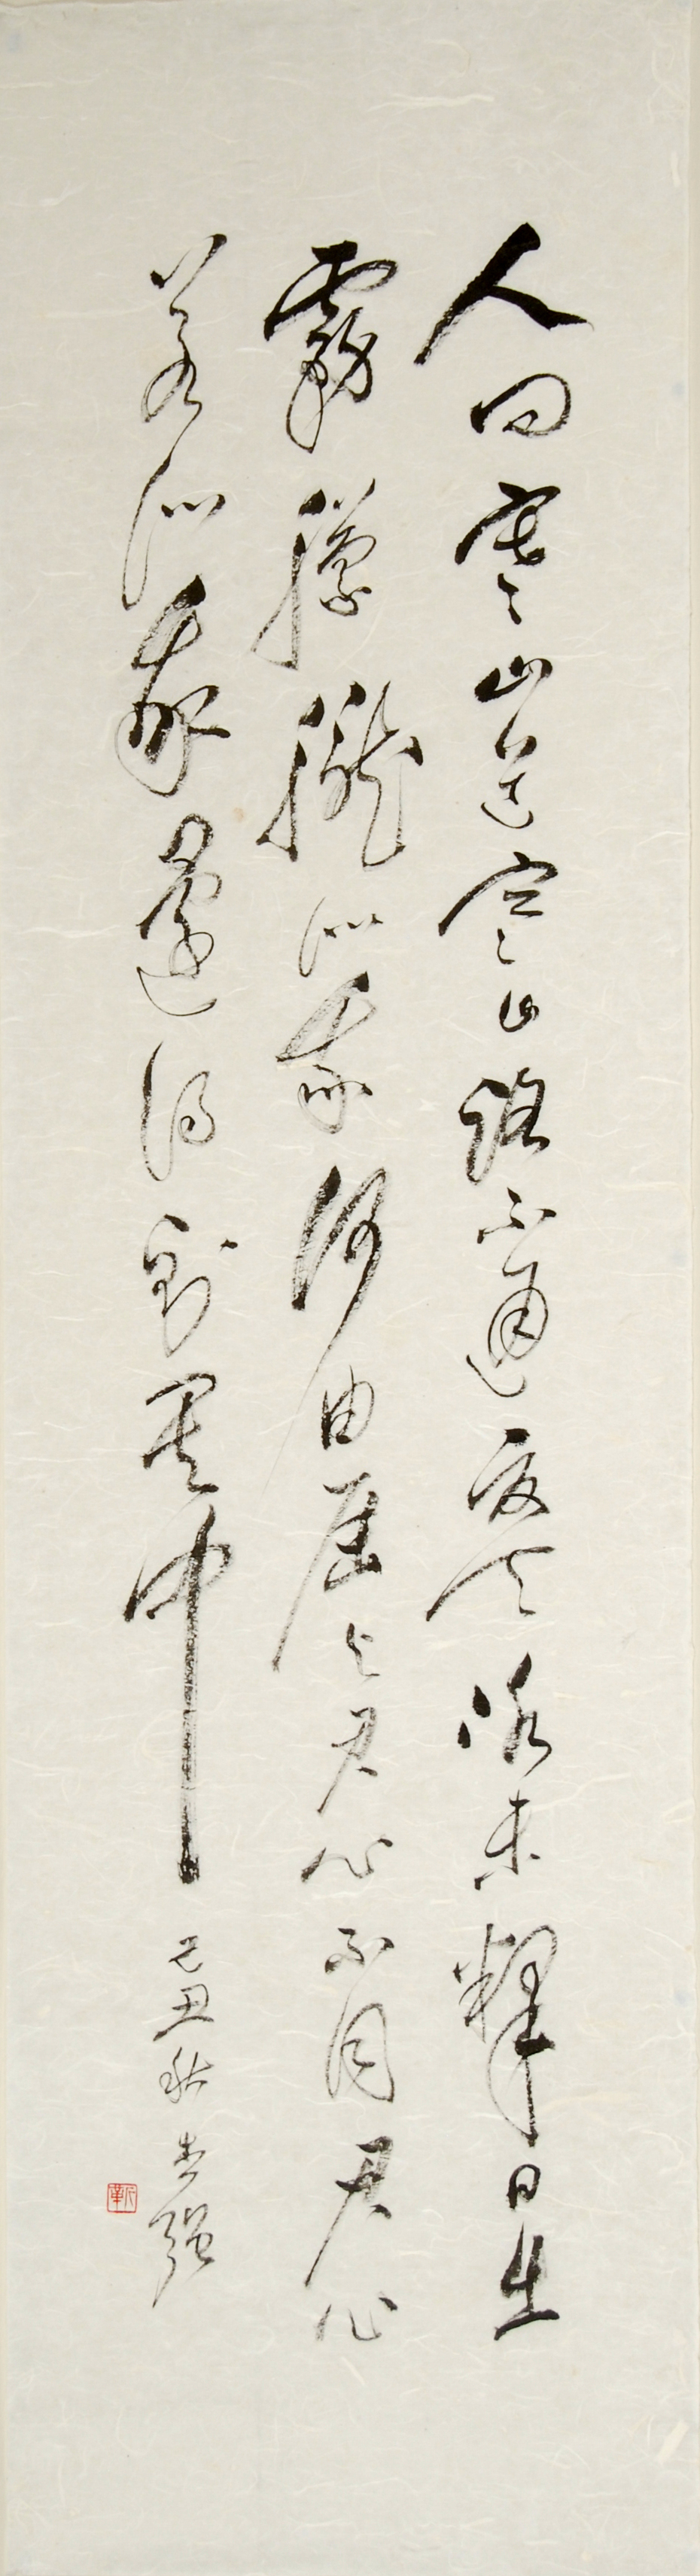 人問寒山道寒山路不通夏天冰未釋日出
霧朦朧似我何由屆与君心不同君心
若似我還得到其中
己丑秋
靳